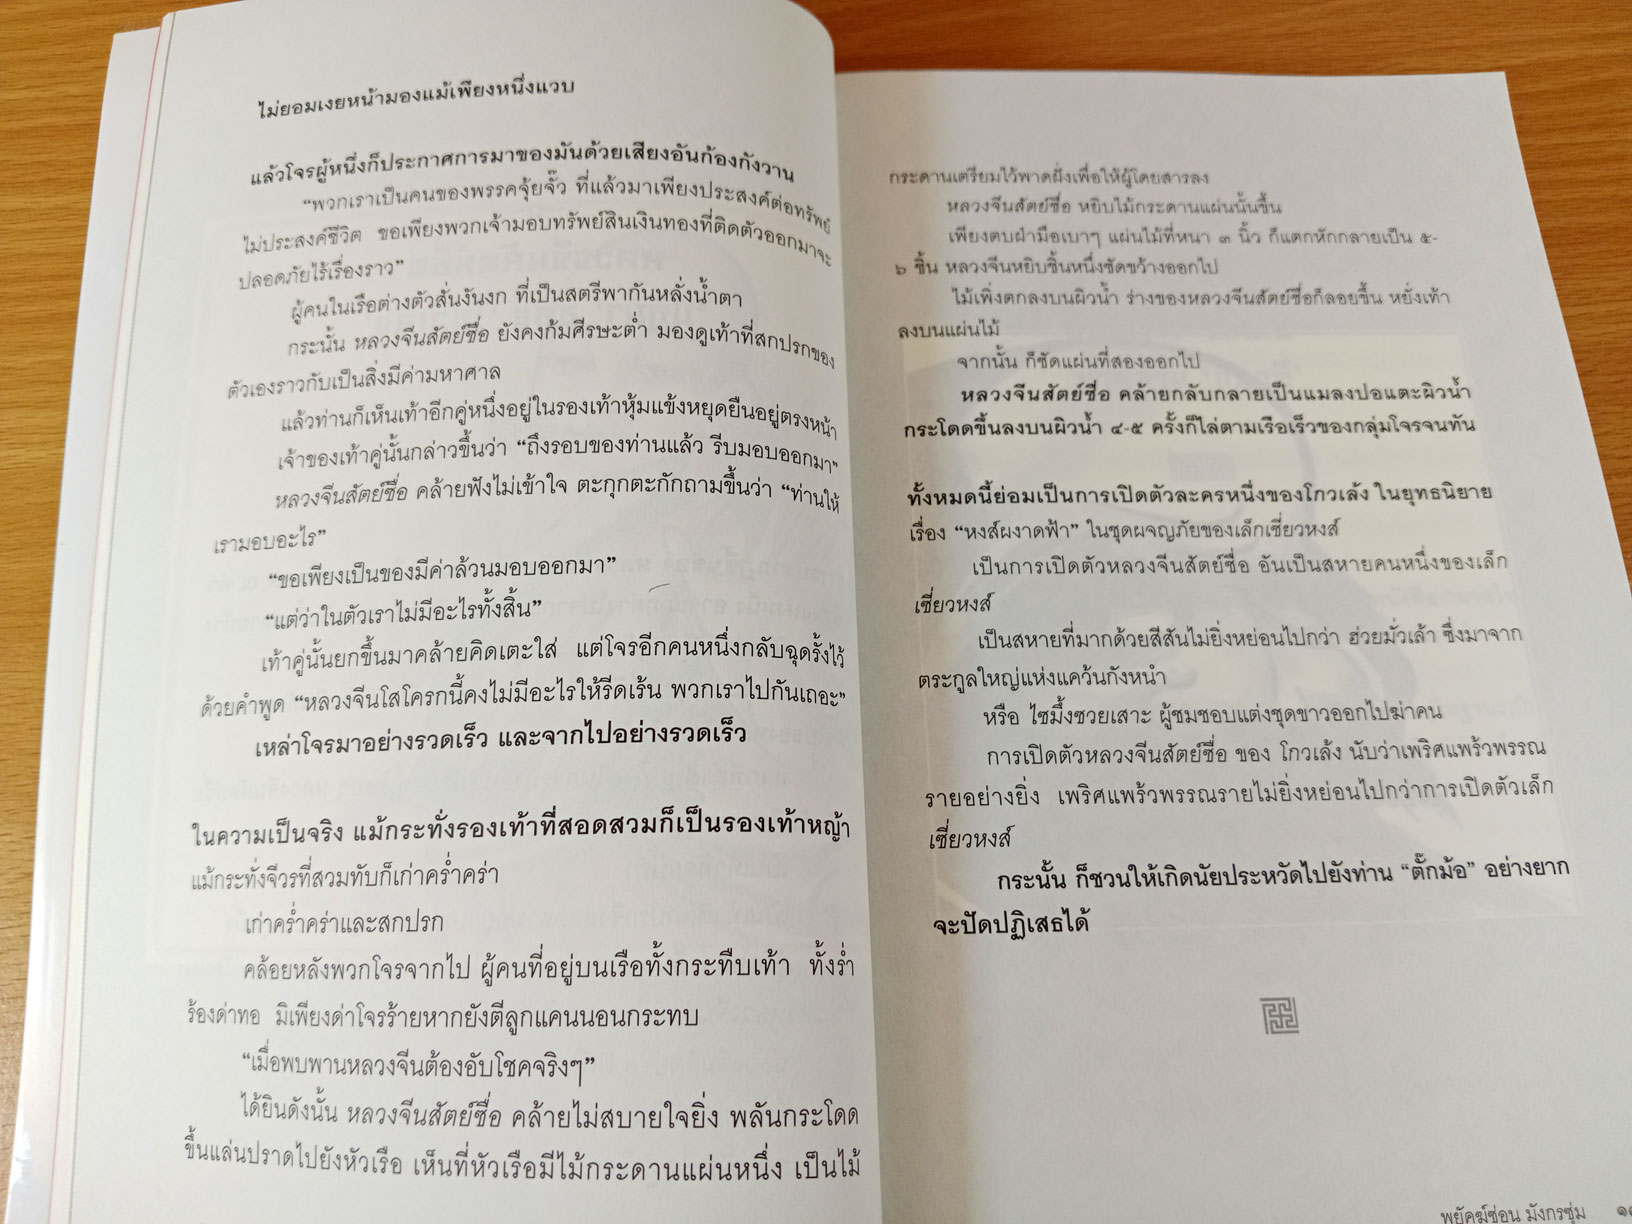 ไม่ยอมเงยหน้ามองแม้เพียงหนึ่งแวบ
แล้วโจรผู้หนึ่งก็ประกาศการมาของมันด้วยเสียงอันก้องกังวาน
“พวกเราเป็นคนของพรรคจุ้ยจั๊ว ที่แล้วมาเพียงประสงค์ต่อทรัพย์
ไม่ประสงค์ชีวิต ขอเพียงพวกเจ้ามอบทรัพย์สินเงินทองที่ติดตัวออกมาจะ
ปลอดภัยไร้เรื่องราว”
ผู้คนในเรือต่างตัวสั่นงันงก ที่เป็นสตรีพากันหลั่งน้ำตา
กระนั้น หลวงจีนสัตย์ซื่อ ยังคงก้มศีรษะต่ำ มองดูเท้าที่สกปรกของ
ตัวเองราวกับเป็นสิ่งมีค่ามหาศาล
แล้วท่านก็เห็นเท้าอีกคู่หนึ่งอยู่ในรองเท้าหุ้มแข้งหยุดยืนอยู่ตรงหน้า
เจ้าของเท้าคู่นั้นกล่าวขึ้นว่า “ถึงรอบของท่านแล้ว รีบมอบออกมา”
หลวงจีนสัตย์ซื่อ คล้ายฟังไม่เข้าใจ ตะกุกตะกักถามขึ้นว่า “ท่านให้
เรามอบอะไร”
“ขอเพียงเป็นของมีค่าล้วนมอบออกมา”
“แต่ว่าในตัวเราไม่มีอะไรทั้งสิ้น”
เท้าคู่นั้นยกขึ้นมาคล้ายคิดเตะใส่ แต่โจรอีกคนหนึ่งกลับฉุดรั้งไว้
ด้วยคำพูด “หลวงจีนโสโครกนี้คงไม่มีอะไรให้รีดเร้น พวกเราไปกันเถอะ”
เหล่าโจรมาอย่างรวดเร็ว และจากไปอย่างรวดเร็ว
ในความเป็นจริง แม้กระทั่งรองเท้าที่สอดสวมก็เป็นรองเท้าหญ้า
แม้กระทั่งจีวรที่สวมทับก็เก่าคร่ำคร่า
เก่าคร่ำคร่าและสกปรก
คล้อยหลังพวกโจรจากไป ผู้คนที่อยู่บนเรือทั้งกระทืบเท้า ทั้งร่ำ
ร้องด่าทอ มิเพียงด่าโจรร้ายหากยังตีลูกแคนนอนกระทบ
“เมื่อพบพานหลวงจีนต้องอับโชคจริงๆ”
ได้ยินดังนั้น หลวงจีนสัตย์ซื่อ คล้ายไม่สบายใจยิ่ง พลันกระโดด
ขึ้นแล่นปราดไปยังหัวเรือ เห็นที่หัวเรือมีไม้กระดานแผ่นหนึ่ง เป็นไม้
กระดานเตรียมไว้พาดฝั่งเพื่อให้ผู้โดยสารลง
หลวงจีนสัตย์ซื่อ หยิบไม้กระดานแผ่นนั้นขึ้น
เพียงตบฝ่ามือเบาๆ แผ่นไม้ที่หนา ๓ นิ้ว ก็แตกหักกลายเป็น ๕-
๖ ชิ้น หลวงจีนหยิบชิ้นหนึ่งซัดขว้างออกไป
ไม้เพิ่งตกลงบนผิวน้ำ ร่างของหลวงจีนสัตย์ซื่อก็ลอยขึ้น หยั่งเท้า
ลงบนแผ่นไม้
จากนั้น ก็ซัดแผ่นที่สองออกไป
หลวงจีนสัตย์ซื่อ คล้ายกลับกลายเป็นแมลงปอแตะผิวน้ำ
กระโดดขึ้นลงบนผิวน้ำ ๔-๕ ครั้งก็ไล่ตามเรือเร็วของกลุ่มโจรจนทัน
ทั้งหมดนี้ย่อมเป็นการเปิดตัวละครหนึ่งของโกวเล้ง ในยุทธนิยาย
เรื่อง “หงส์ผงาดฟ้า” ในชุดผจญภัยของเล็กเซี่ยวหงส์
เป็นการเปิดตัวหลวงจีนสัตย์ซื่อ อันเป็นสหายคนหนึ่งของเล็ก
เซี่ยวหงส์
เป็นสหายที่มากด้วยสีสันไม่ยิ่งหย่อนไปกว่า ฮ่วยมั่วเล้า ซึ่งมาจาก
ตระกูลใหญ่แห่งแคว้นกังหนำ
หรือ ไซมึ้งซวยเสาะ ผู้ชมชอบแต่งชุดขาวออกไปฆ่าคน
การเปิดตัวหลวงจีนสัตย์ซื่อ ของ โกวเล้ง นับว่าเพริศแพร้วพรรณ
รายอย่างยิ่ง เพริศแพร้วพรรณรายไม่ยิ่งหย่อนไปกว่าการเปิดตัวเล็ก
เซี่ยวหงส์
กระนั้น ก็ชวนให้เกิดนัยประหวัดไปยังท่าน “ตั๊กม้อ” อย่างยาก
จะปัดปฏิเสธได้
พยัคฆ์ซ่อน มังกรซุ่ม